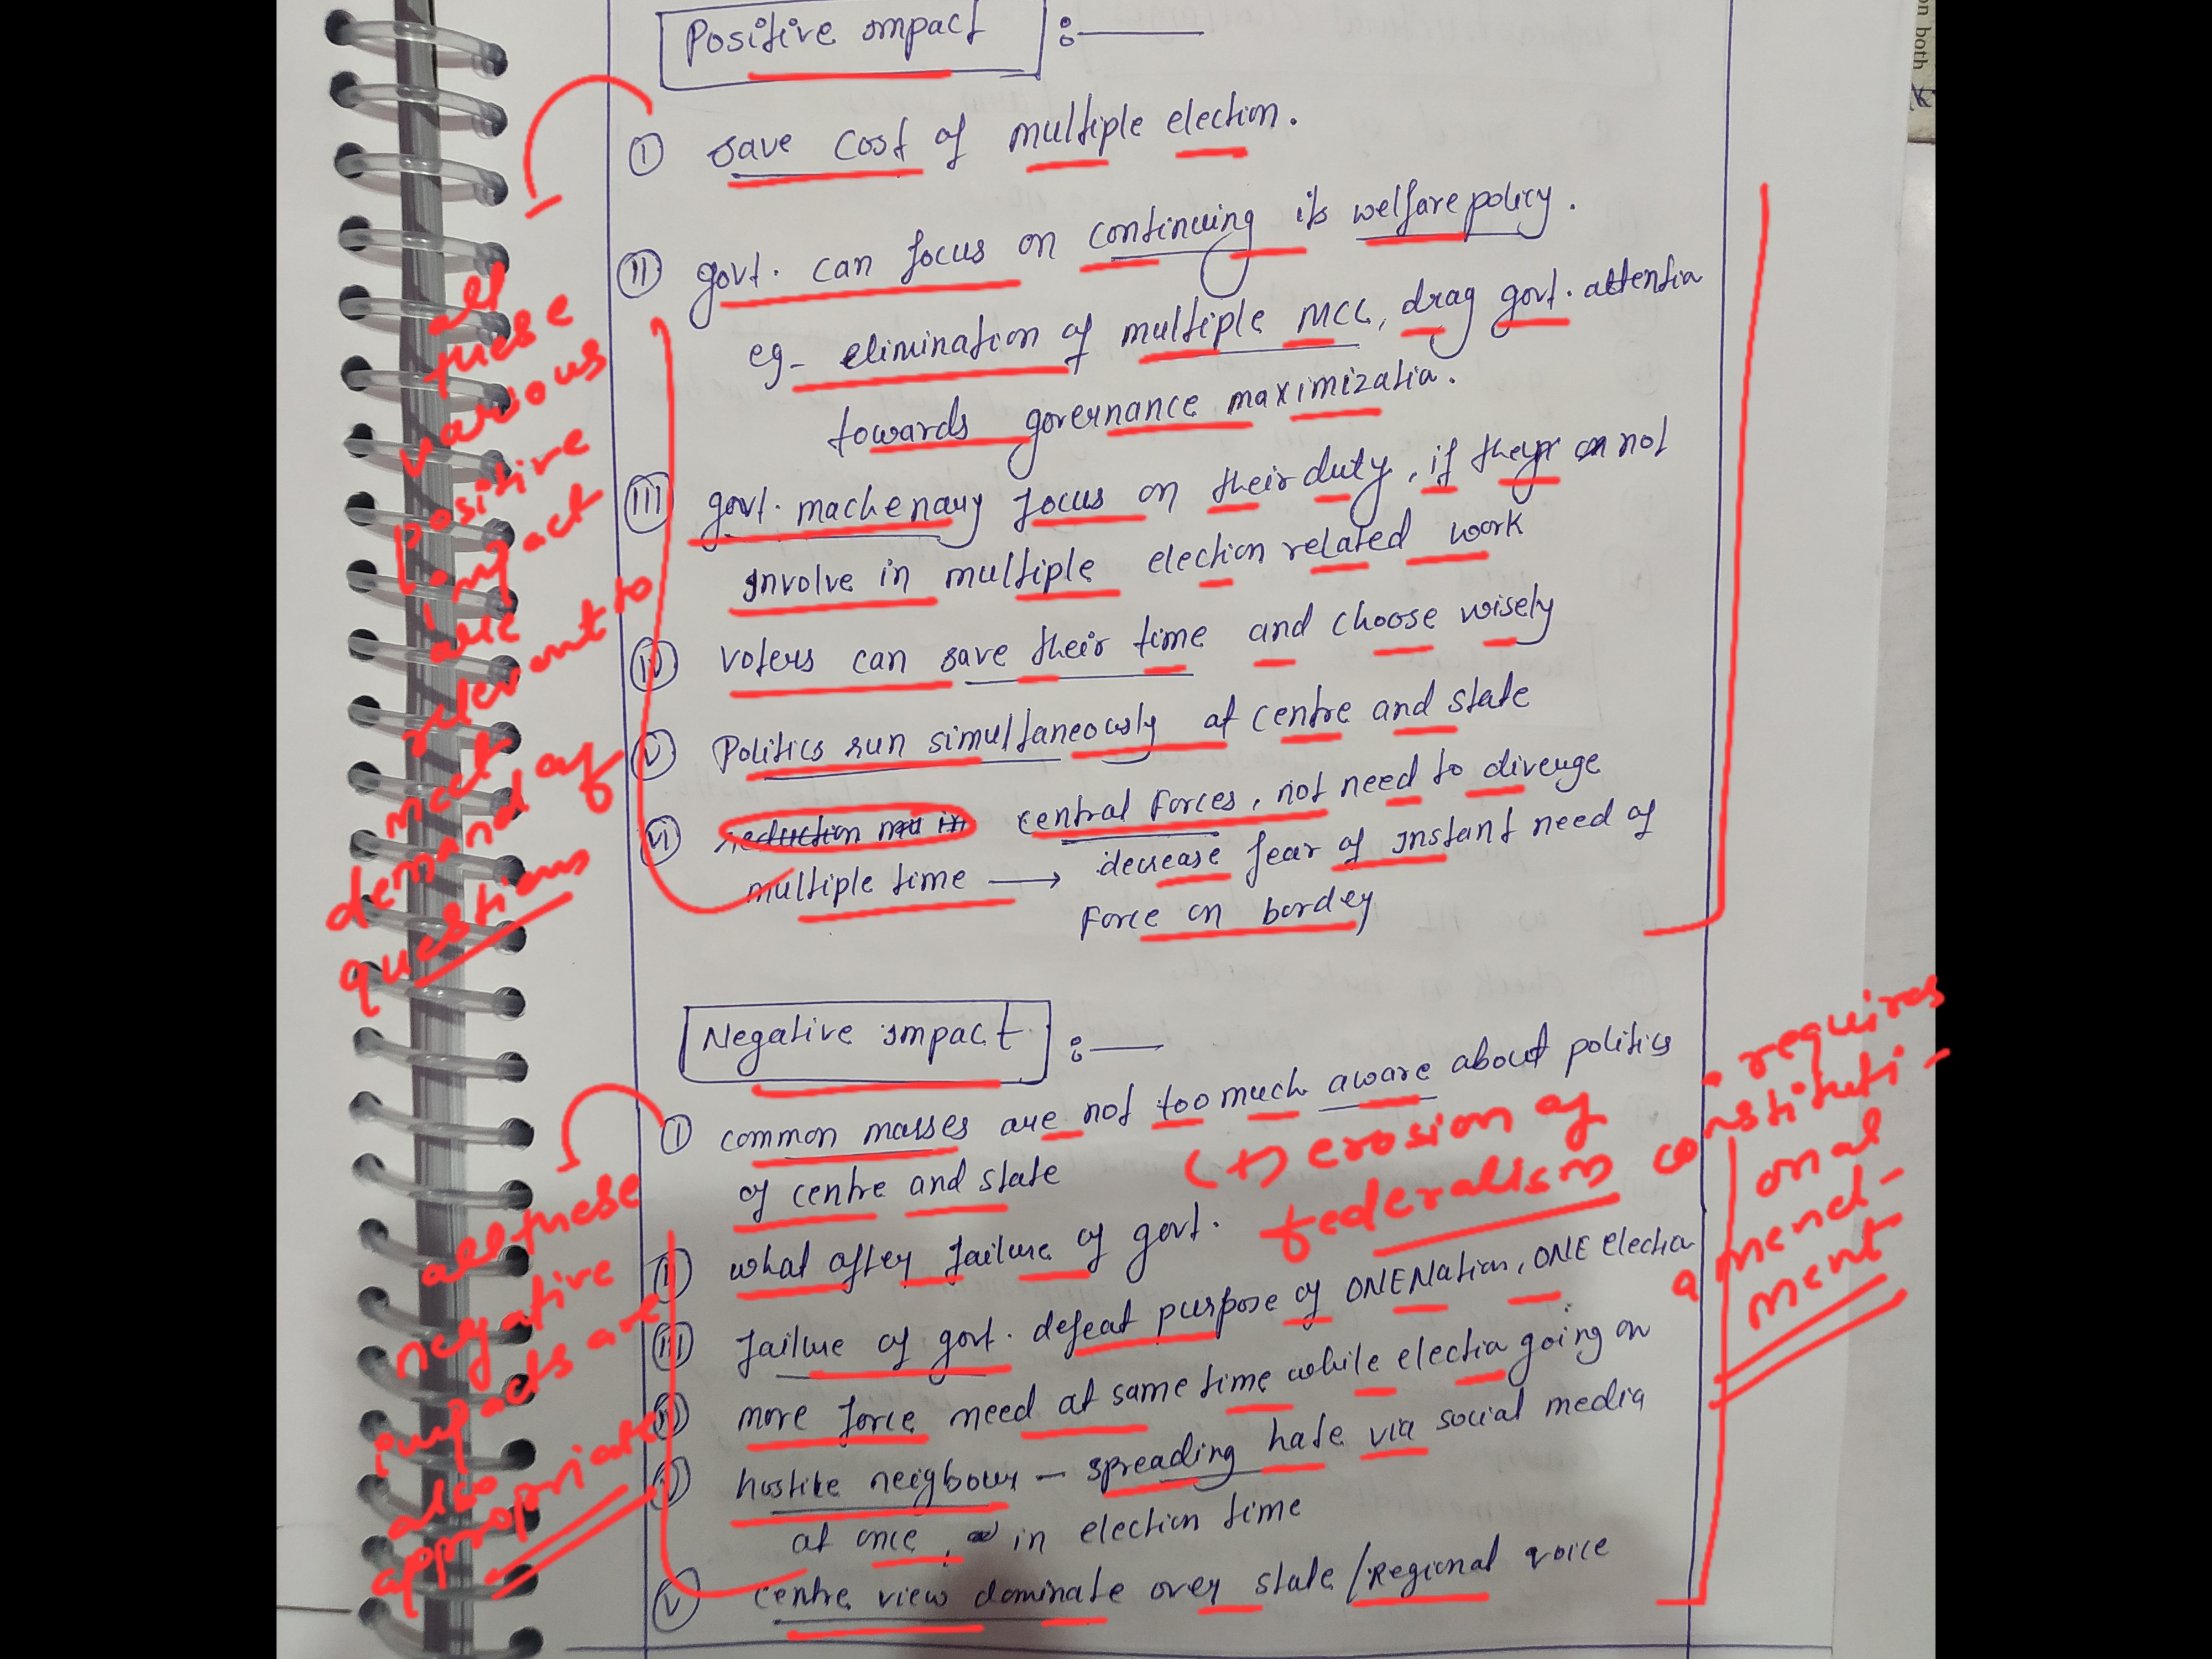 Positive impact :-
on both
(i) save cost of multiple election.
(ii) govt. can focus on continuing its welfare policy.
eg- elimination of multiple MCC, drag govt. attention
towards governance maximization.
(iii) govt. machenary focus on their duty, if they not
involve in multiple election related work
(iv) voters can save their time and choose wisely
(v) Politics run simultaneously at centre and state
(vi) reduction central Forces, not need to diverge
multiple time → decrease fear of instant need of
Force on border
all
these
various
positive
impact
are
relevant to
meet
demand of
questions
Negative impact :-
(i) common masses are not too much aware about politics
of centre and state
(ii) what after failure of govt.
(iii) failure of govt. defeat purpose of ONE Nation, ONE election
(iv) more force need at same time while election going on
(v) hostile neigbour - spreading hate via social media
at once, in election time
(v) centre view dominate over state/Regional voice
(+) erosion of
federalism
- requires
constituti-
onal
amend-
ment
all these
negative
impacts are
also
appropriate